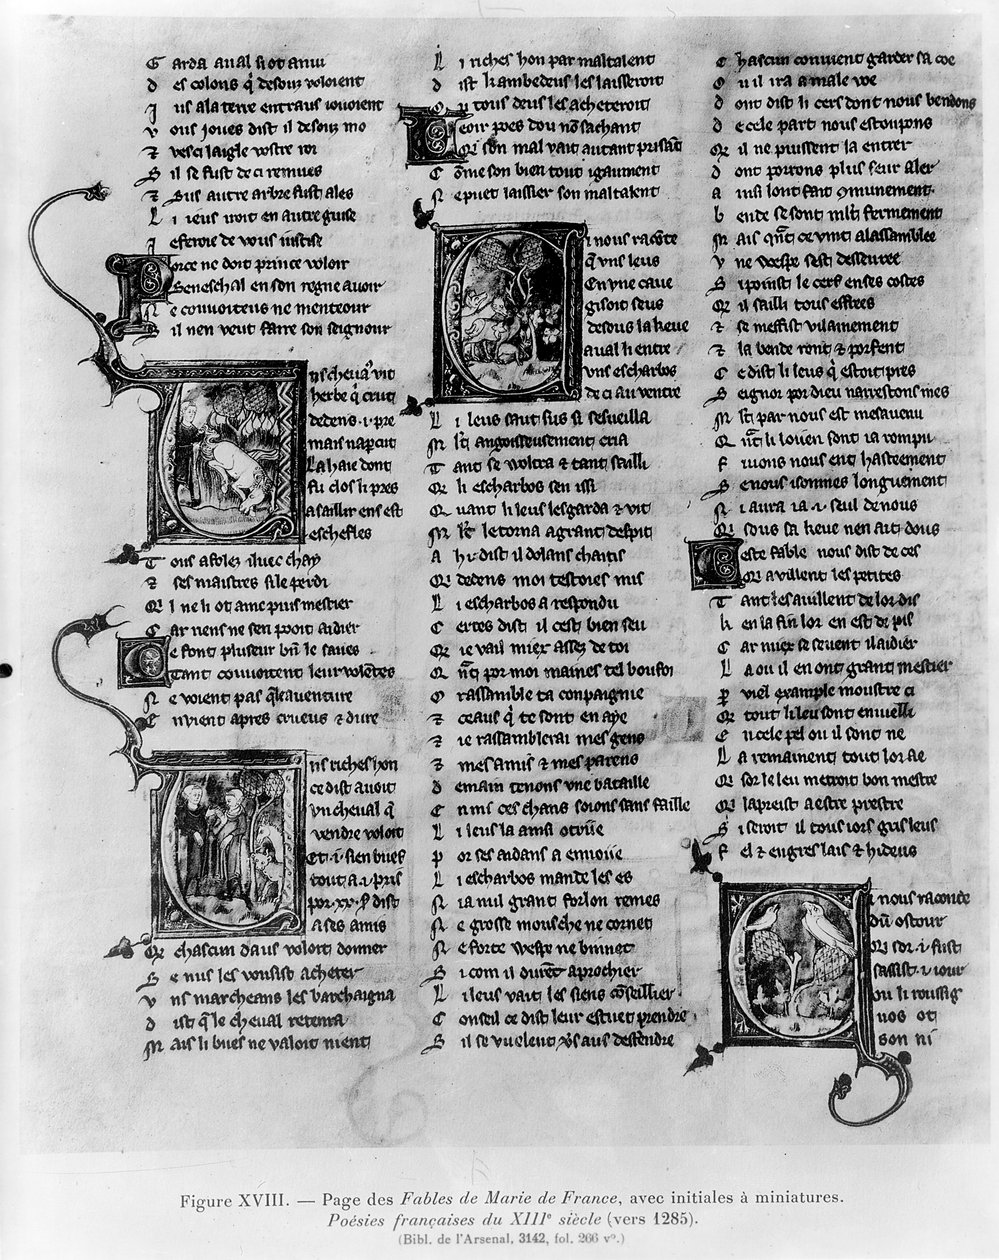 G arda aual si ot anui
d es colons q̃ desouz voloient
J us a la terre entraus iouoient
v ous ioues dist il desouz mo
⁊ vesci laigle vostre roi
S il se fust de ci remues
⁊ Sus autre arbre fust ales
L i ieus iroit en autre guise
J e feroie de vous iustise
Force ne doit prince voloir
Seneschal en son regne auoir
N e conuoiteus ne menteour
S il nen veut faire son seignour
Uns cheuaͥ vit
herbe q̃ crut
dedens .i. pre
mais naparcut
La haie dont
fu clos li pres
a saillir ens est
eschefles
T ous afolez iluec chay
⁊ ses maistres si le perdi
Q l ne li ot ainc puis mestier
C ar riens ne sen pooit aidier
Ce font pluseur bñ le saues
Tant conuoitent leur volẽtes
N e voient pas q̃l eauenture
C n vient apres crueus ⁊ dure
Uns riches hon
ce dist auoit
vn cheual q̃
vendre voloit
Et .i. sien buef
tout a .i. pris
por .xx. s dist
a ses amis
Q chascun daus voloit donner
S e nus les vousist acheter
v ns marcheans les barchaigna
d ist q̃ le cheual retenra
M ais li bues ne valoit nient
L i riches hon par maltalent
d ist kambedeus les lairoit
O u tous deus les acheteroit
Veoir poes dou nõ sachant
Q son mal vait autant prisãt
C õme son bien tout igaument
N e puet laissier son maltalent
Ci nous racõte
q̃ vns leus
En vne caue
gisoit seus
desous la keue
aual li entre
vns escharbos
de ci au ventre
L i leus saut sus si sesueilla
M lt̃ angoisseusement cria
T ant se voltra ⁊ tant sailli
Q li escharbos sen issi
Q uant li leus lesgarda ⁊ vit
M lt̃ le torna a grant despit
A hi dist il dolans chaitis
Q dedens moi testoies mis
L i escharbos a respondu
C ertes dist il cest bien seu
Q ie vail miex assez de toi
Q nq̃ por moi maines tel boufoi
O r assamble ta conpaignie
⁊ ceaus q̃ te sont en aye
⁊ ie rassamblerai mes gens
⁊ mes amis ⁊ mes parens
d emain tenons vne bataille
C n mi ces chans soions sans faille
L i leus la ainsi otriie
p or ses aidans a enuoiie
L i escharbos mande les es
N ia mil grant forlon remes
N e grosse mousche ne cornet
N e forte wespe ne binnet
S i com il durent aprochier
L i leus vait les siens cõseillier
C onseil ce dist leur estuet prendre
S il se vuelent vs aus desfẽdre
C hascun conuient garder sa coe
O u il ira a male voe
d ont dist li cers dont nous bendons
d e cele part nous estoupons
Q il ne puissent la entrer
d ont porrons plus seur aler
A insi lont fait cmunement
b ende se sont mlt̃ fermement
M ais q̃nt ce vint a lassamblee
v ne wespe sest desseuree
S i point le cerf en ses costes
Q il sailli tous effrees
⁊ se meffist vilainement
⁊ la bende ront ⁊ porfent
C e dist li leus q̃ estoit pres
S eignor por dieu n arrestons mes
M lt̃ par nous est mesauenu
Q nt̃ li loien sont ia rompu
F uions nous ent hasteement
S e nous i sommes longuement
N i aura ia .i. seul de nous
Q sous sa keue nen ait dous
Ceste fable nous dist de ces
Q auillent les petites
T ant les auillent de lor dis
k en la fin lor en est de pis
C ar miex se seuent il aidier
L a ou il en ont grant mestier
p ar viel example moustre ci
Q tout li leu sont enuielli
E n cele pel ou il sont ne
L a remainent tout lor ae
Q sor le leu metroit bon mestre
Q la preist a estre prestre
S i seroit il tous iors gris leus
F el ⁊ engres lais ⁊ hideus
Ci nous raconte
dũ ostour
Q sor .i. fust
sassist .i. iour
ou li roussig
nos ot
son ni
Figure XVIII. — Page des Fables de Marie de France, avec initiales à miniatures.
Poésies françaises du XIIIe siècle (vers 1285).
(Bibl. de l'Arsenal, 3142, fol. 266 vº.)